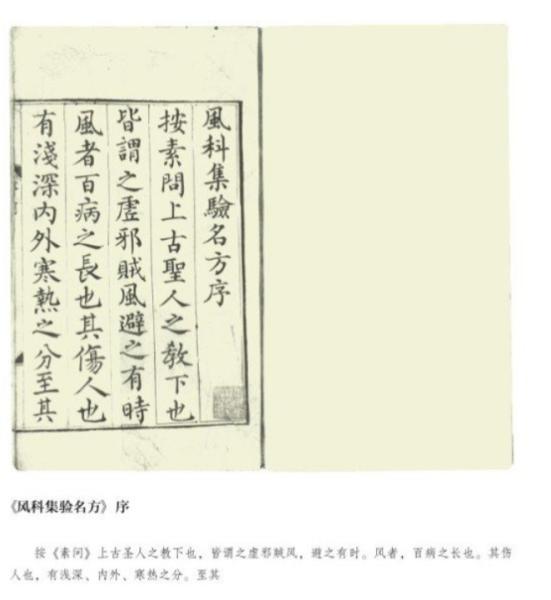 風科集驗名方序
按素問上古聖人之教下也
皆謂之虛邪賊風避之有時
風者百病之長也其傷人也
有淺深内外寒熱之分至其
《风科集验名方》序
按《素问》上古圣人之教下也，皆谓之虚邪贼风，避之有时。风者，百病之长也。其伤
人也，有浅深、内外、寒热之分。至其